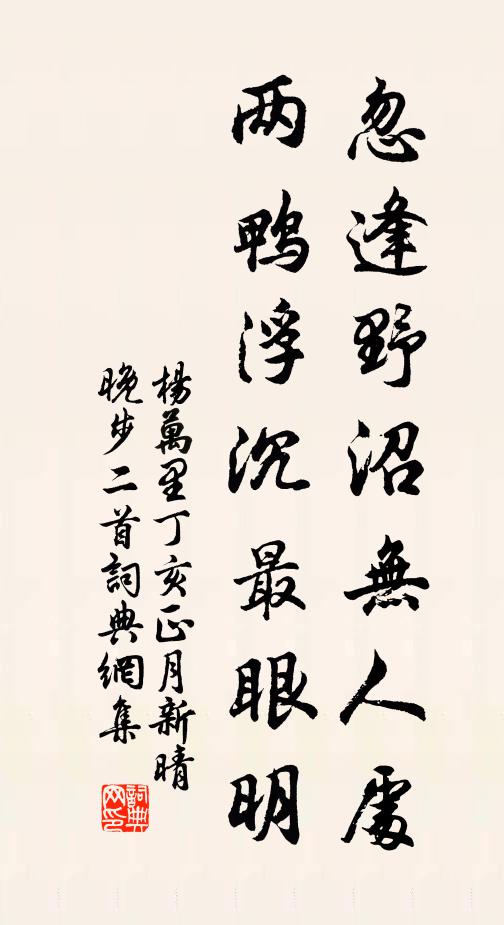 忽逢野沼無人處
两鴨浮沉最眼明
楊萬里丁亥正月新晴
晚步二首詞典網集
詞典
网印